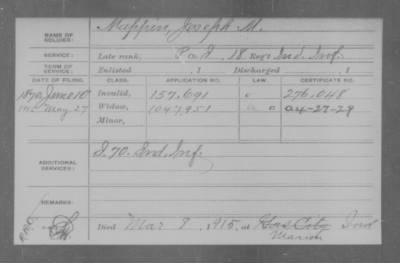 NAME OF SOLDIER: Mappin, Joseph M.
SERVICE: Late rank, Reg't Ind. Inf.
TERM OF SERVICE: Enlisted , 1 Discharged , 1
DATE OF FILING. CLASS. APPLICATION NO. LAW. CERTIFICATE NO.
1870, June 16 Invalid, 157,691 276,048
May 27 Widow, 1047,951 04-27-29
Minor,
ADDITIONAL SERVICES: I. 70. Ind. Inf.
REMARKS:
Died Mar 8, 1915, at Gas City Ind
Marion